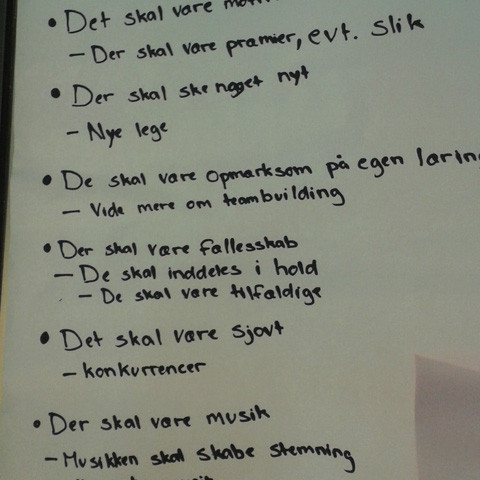 • Det skal være
– Der skal være præmier, evt. slik
• Der skal ske noget nyt
– Nye lege
• De skal være opmærksom på egen læring
– Vide mere om teambuilding
• Der skal være fællesskab
– De skal inddeles i hold
– De skal være tilfældige
• Det skal være sjovt
– konkurrencer
• Der skal være musik
– Musikken skal skabe stemning